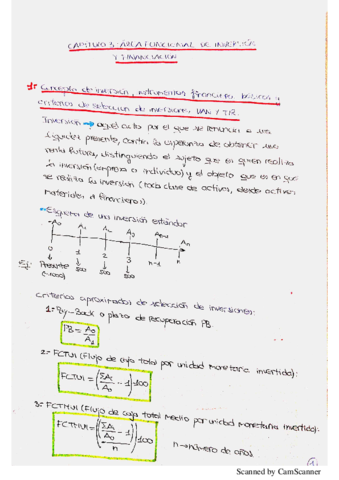 CAPITULO 3. AREA FUNCIONAL DE INVERSIÓN
Y FINANCIACIÓN
1- Concepto de inversión, instrumentos financieros básicos y
criterios de selección de inversiones VAN Y TIR
Inversión → aquel acto por el que se renuncia a una
liquidez presente, contra la esperanza de obtener una
renta futura, distinguiendo el sujeto que es quien realiza
la inversión (empresa o individuo) y el objeto que es en que
se realiza la inversión (toda clase de activos, desde activos
materiales a financieros).
Esquema de una inversión estándar
-A0 A1 A2 A3 An-1 An
0 1 2 3 n-1 n
Ej: Presente 500 500 500
(-1000)
Criterios aproximados de selección de inversiones:
1- Pay-Back o plazo de recuperación PB.
PB = A0/A1
2- FCTUI (Flujo de caja total por unidad monetaria invertida):
FCTUI = (ΣAi/A0 - 1)·100
3- FCTMUI (Flujo de caja total Medio por unidad Monetaria Invertida):
FCTMUI = ((ΣAi/A0 - 1)/n)·100 n→número de años.
Scanned by CamScanner